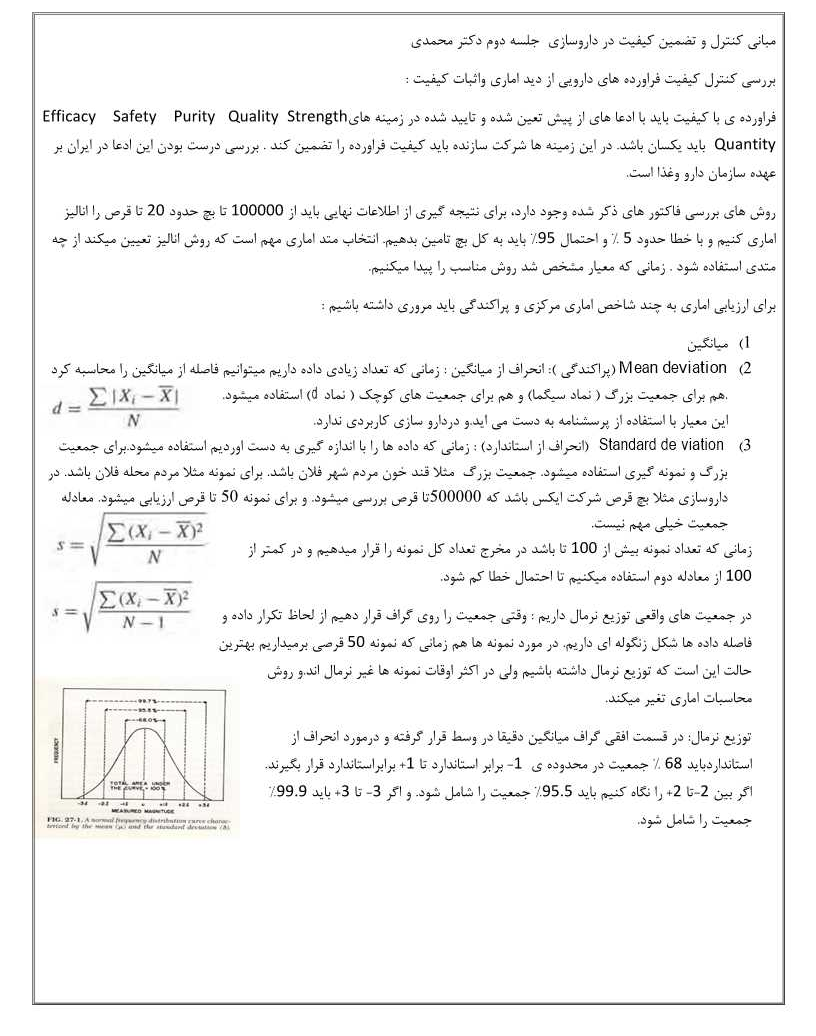 مبانی کنترل و تضمین کیفیت در داروسازی جلسه دوم دکتر محمدی
بررسی کنترل کیفیت فراورده های دارویی از دید اماری واثبات کیفیت :
فراورده ی با کیفیت باید با ادعا های از پیش تعین شده و تایید شده در زمینه های Efficacy Safety Purity Quality Strength
Quantity باید یکسان باشد. در این زمینه ها شرکت سازنده باید کیفیت فراورده را تضمین کند . بررسی درست بودن این ادعا در ایران بر
عهده سازمان دارو وغذا است.
روش های بررسی فاکتور های ذکر شده وجود دارد، برای نتیجه گیری از اطلاعات نهایی باید از 100000 تا بچ حدود 20 تا قرص را انالیز
اماری کنیم و با خطا حدود 5 ٪ و احتمال 95٪ باید به کل بچ تامین بدهیم. انتخاب متد اماری مهم است که روش انالیز تعیین میکند از چه
متدی استفاده شود . زمانی که معیار مشخص شد روش مناسب را پیدا میکنیم.
برای ارزیابی اماری به چند شاخص اماری مرکزی و پراکندگی باید مروری داشته باشیم :
1) میانگین
2) Mean deviation (پراکندگی ): انحراف از میانگین : زمانی که تعداد زیادی داده داریم میتوانیم فاصله از میانگین را محاسبه کرد
.هم برای جمعیت بزرگ ( نماد سیگما) و هم برای جمعیت های کوچک ( نماد d) استفاده میشود.
d = ∑ | Xᵢ − X̅ | / N
این معیار با استفاده از پرسشنامه به دست می اید.و دردارو سازی کاربردی ندارد.
3) Standard de viation (انحراف از استاندارد) : زمانی که داده ها را با اندازه گیری به دست اوردیم استفاده میشود.برای جمعیت
بزرگ و نمونه گیری استفاده میشود. جمعیت بزرگ مثلا قند خون مردم شهر فلان باشد. برای نمونه مثلا مردم محله فلان باشد. در
داروسازی مثلا بچ قرص شرکت ایکس باشد که 500000تا قرص بررسی میشود. و برای نمونه 50 تا قرص ارزیابی میشود. معادله
جمعیت خیلی مهم نیست.
s = √(∑ (Xᵢ − X̅)² / N)
زمانی که تعداد نمونه بیش از 100 تا باشد در مخرج تعداد کل نمونه را قرار میدهیم و در کمتر از
100 از معادله دوم استفاده میکنیم تا احتمال خطا کم شود.
s = √(∑ (Xᵢ − X̅)² / N − 1)
در جمعیت های واقعی توزیع نرمال داریم : وقتی جمعیت را روی گراف قرار دهیم از لحاظ تکرار داده و
فاصله داده ها شکل زنگوله ای داریم. در مورد نمونه ها هم زمانی که نمونه 50 قرصی برمیداریم بهترین
حالت این است که توزیع نرمال داشته باشیم ولی در اکثر اوقات نمونه ها غیر نرمال اند.و روش
محاسبات اماری تغیر میکند.
توزیع نرمال: در قسمت افقی گراف میانگین دقیقا در وسط قرار گرفته و درمورد انحراف از
استانداردباید 68 ٪ جمعیت در محدوده ی 1- برابر استاندارد تا 1+ برابراستاندارد قرار بگیرند.
اگر بین 2-تا 2+ را نگاه کنیم باید 95.5٪ جمعیت را شامل شود. و اگر 3- تا 3+ باید 99.9٪
جمعیت را شامل شود.
99.7%
95.5%
68.0%
FREQUENCY
TOTAL AREA UNDER
THE CURVE = 100%
MEASURED MAGNITUDE
FIG. 27-1. A normal frequency distribution curve charac-
terized by the mean (μ) and the standard deviation (δ).